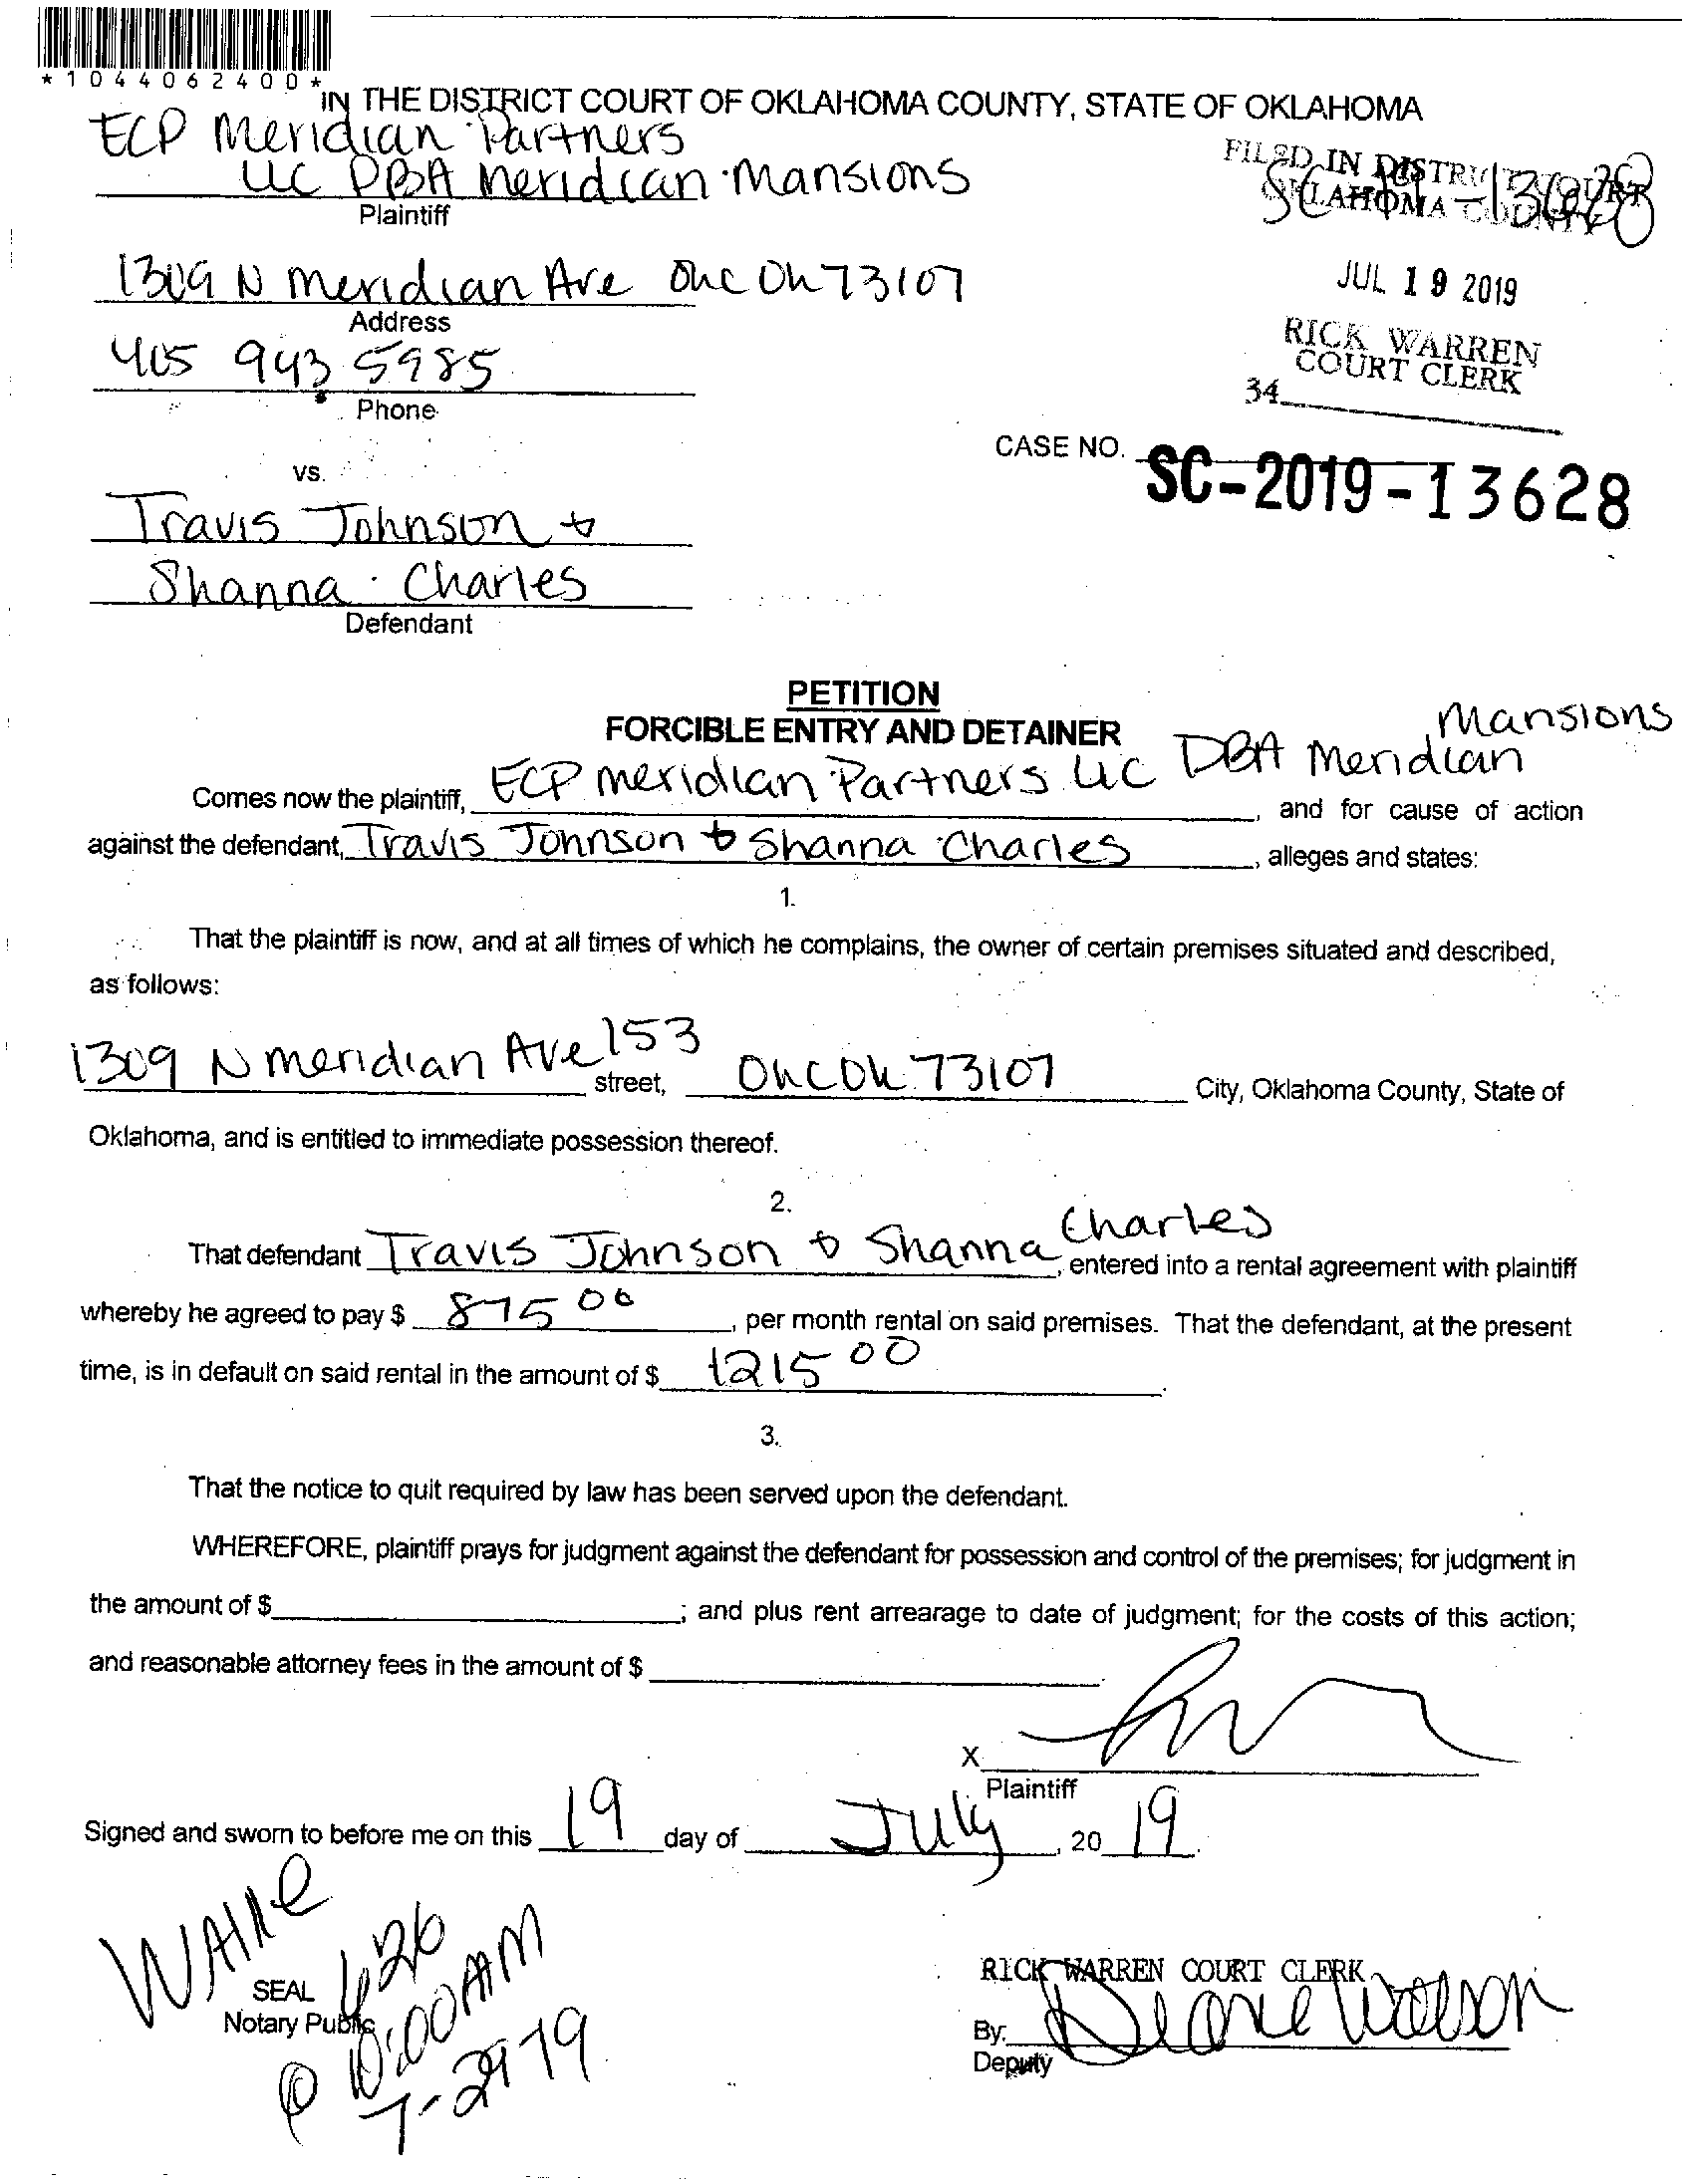 *1044062400*
IN THE DISTRICT COURT OF OKLAHOMA COUNTY, STATE OF OKLAHOMA
ECP Meridian Partners
LLC DBA Meridian Mansions
Plaintiff
FILED IN DISTRICT COURT
OKLAHOMA COUNTY
SC 19-13628
1309 N Meridian Ave OKC OK 73107
Address
JUL 19 2019
405 943 5985
Phone
RICK WARREN
COURT CLERK
34
vs.
CASE NO. SC-2019-13628
Travis Johnson &
Shanna Charles
Defendant
PETITION
FORCIBLE ENTRY AND DETAINER
Comes now the plaintiff, ECP Meridian Partners LLC DBA Meridian Mansions, and for cause of action
against the defendant, Travis Johnson & Shanna Charles, alleges and states:
1.
That the plaintiff is now, and at all times of which he complains, the owner of certain premises situated and described,
as follows:
1309 N Meridian Ave 153 street, OKC OK 73107 City, Oklahoma County, State of
Oklahoma, and is entitled to immediate possession thereof.
2.
That defendant Travis Johnson & Shanna Charles, entered into a rental agreement with plaintiff
whereby he agreed to pay $ 875 00, per month rental on said premises. That the defendant, at the present
time, is in default on said rental in the amount of $ 1215 00.
3.
That the notice to quit required by law has been served upon the defendant.
WHEREFORE, plaintiff prays for judgment against the defendant for possession and control of the premises; for judgment in
the amount of $ ; and plus rent arrearage to date of judgment; for the costs of this action;
and reasonable attorney fees in the amount of $
X
Plaintiff
Signed and sworn to before me on this 19 day of July, 20 19.
SEAL
Notary Public
@ 10:00 AM
7-29-19
RICK WARREN COURT CLERK
By:
Deputy